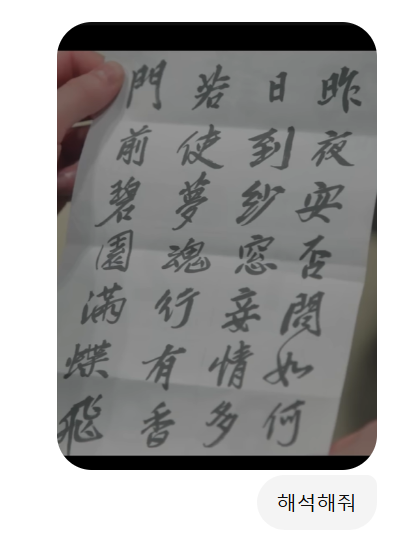 昨夜安否問如何
日到紗窓妾情多
若使夢魂行有香
門前碧園満蝶飛
해석해줘